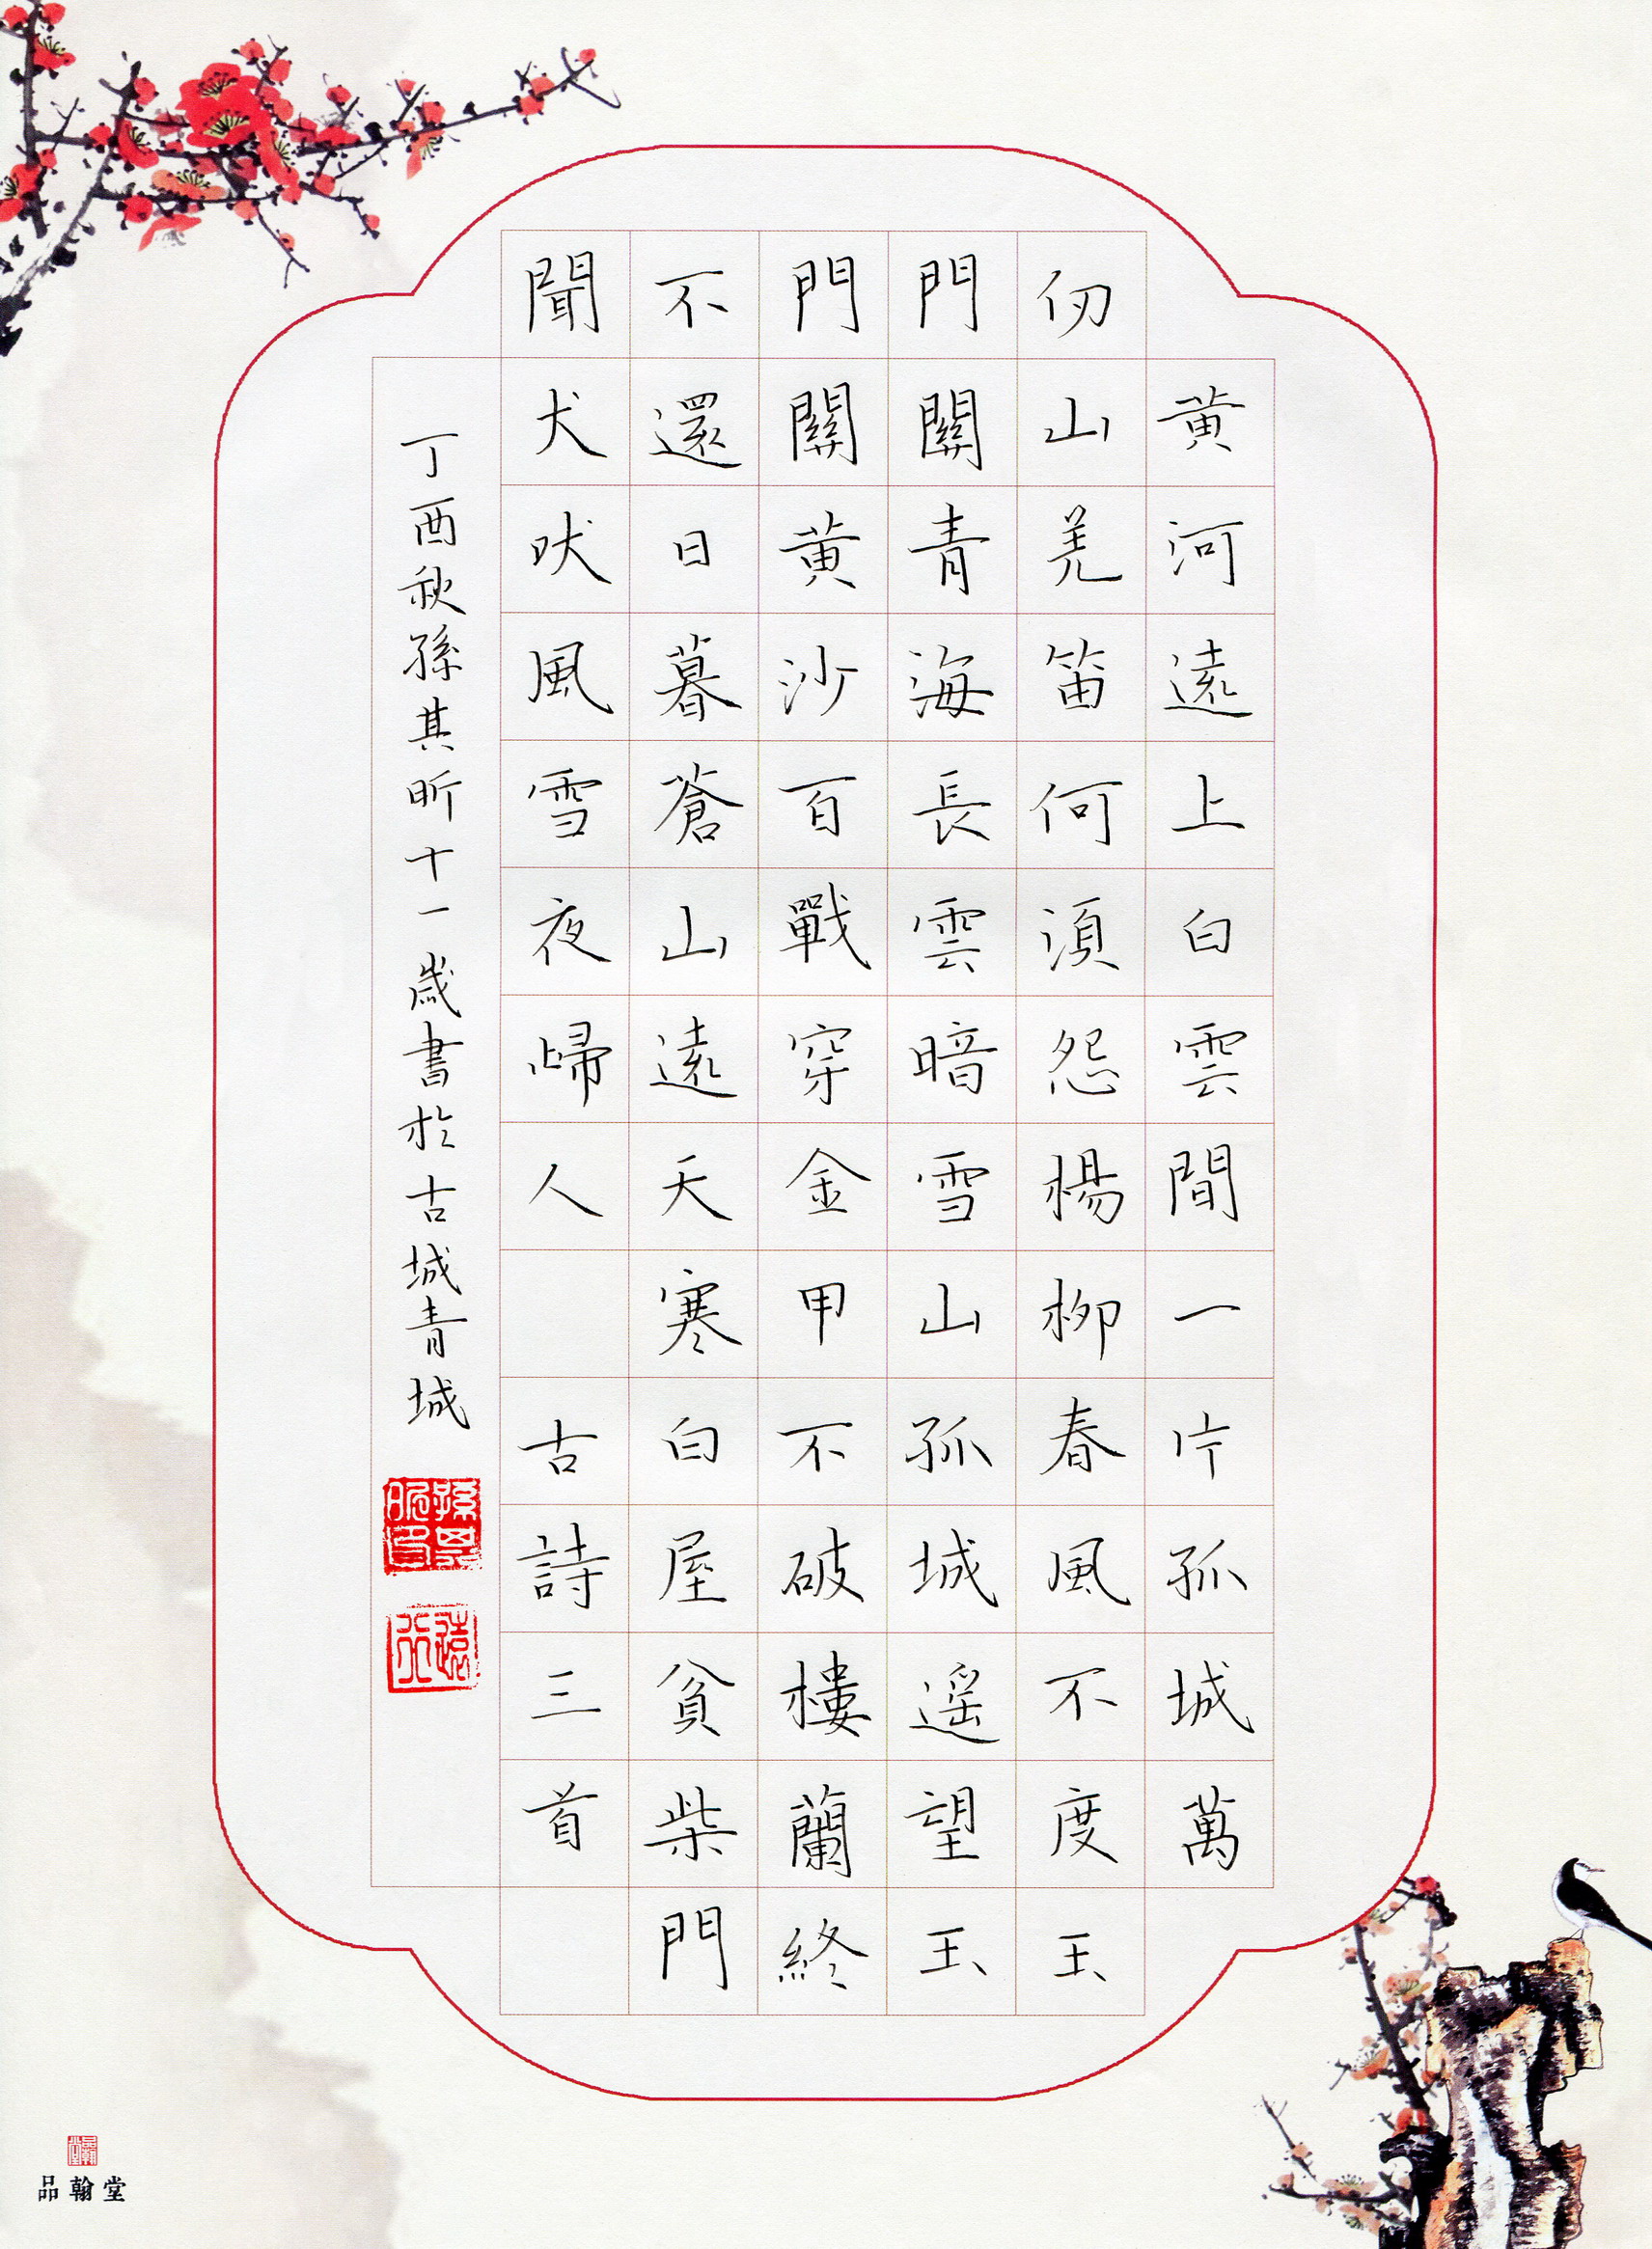 黄河遠上白雲間一片孤城萬
仞山羌笛何須怨楊柳春風不度玉
門關青海長雲暗雪山孤城遥望玉
門關黄沙百戰穿金甲不破樓蘭終
不還日暮蒼山遠天寒白屋貧柴門
聞犬吠風雪夜歸人 古詩三首
丁酉秋孫其昕十一歲書於古城青城
品翰堂